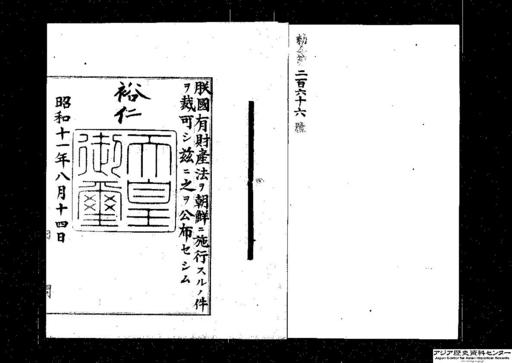 勅令第二百六十六號
朕國有財產法ヲ朝鮮ニ施行スルノ件
ヲ裁可シ茲ニ之ヲ公布セシム
裕仁
天皇御璽
昭和十一年八月十四日
アジア歴史資料センター
Japan Center for Asian Historical Records